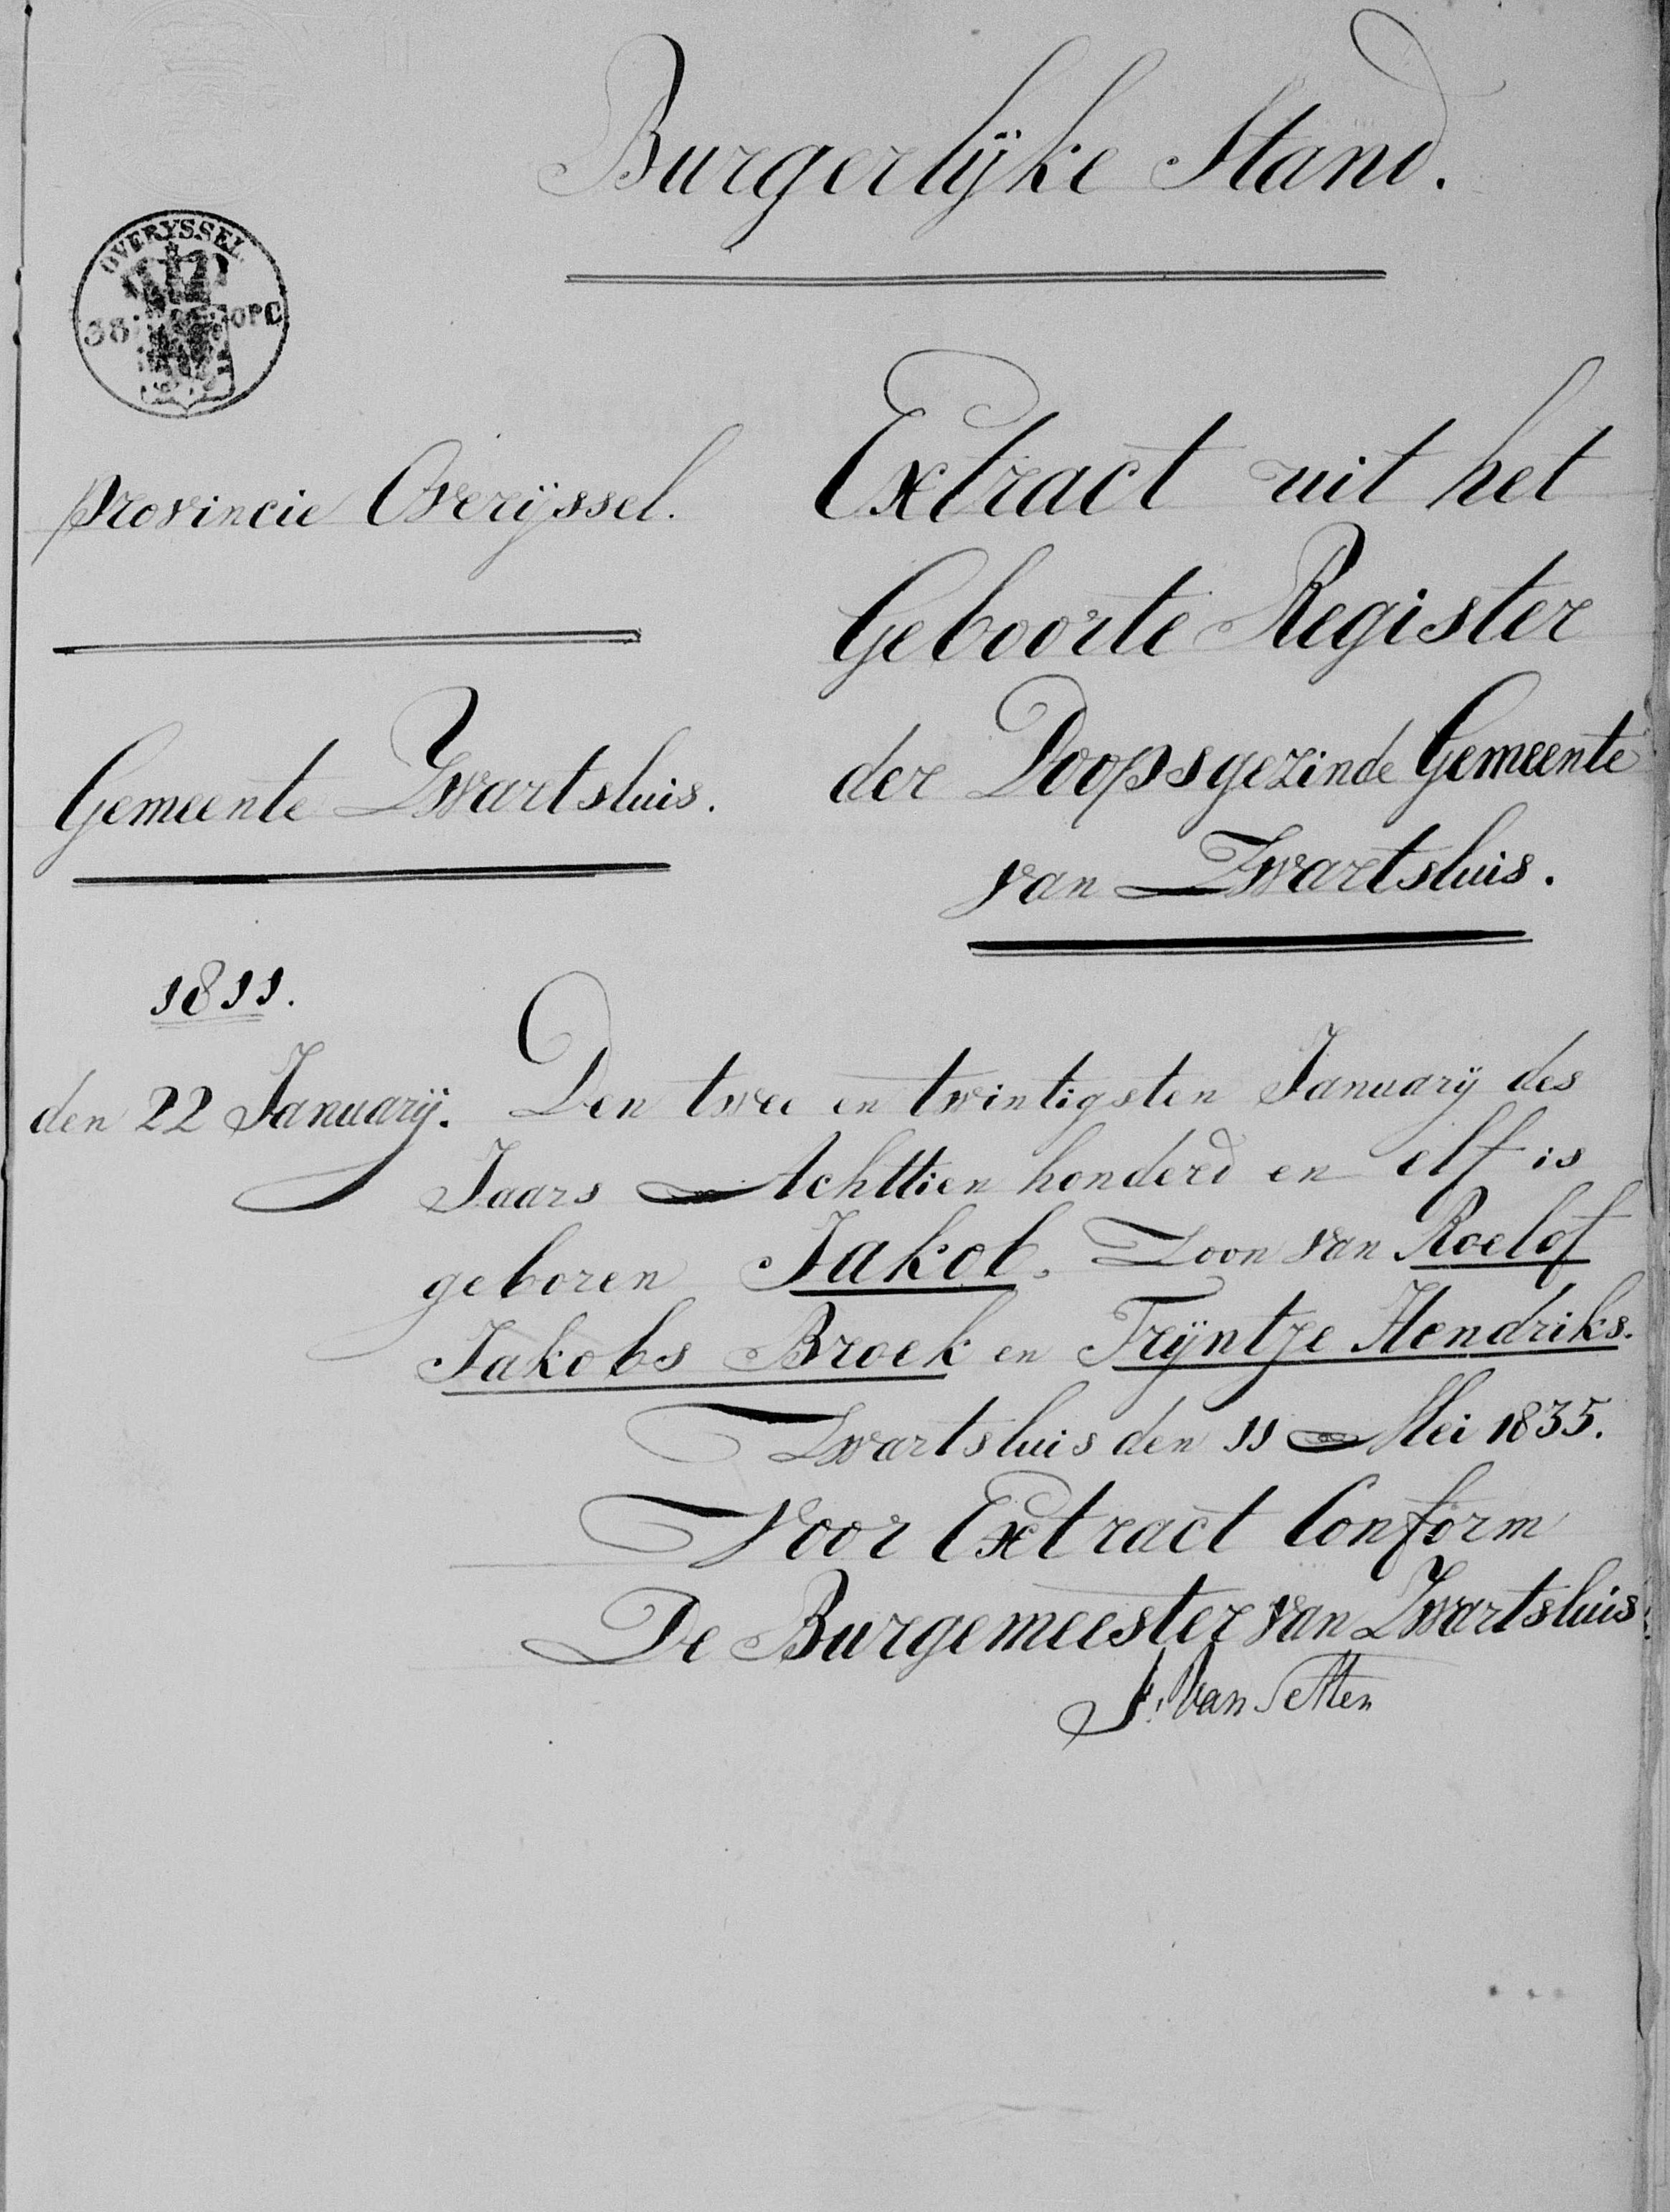 Burgerlijke Stand.
OVERYSSEL
38
OPC
Provincie Overijssel.
Gemeente Zwartsluis.
Extract uit het
Geboorte Register
der Doopsgezinde Gemeente
van Zwartsluis.
1811.
den 22 Januarij.
Den twee en twintigsten Januarij des
Jaars Achttien honderd en elf is
geboren Jakob, Zoon van Roelof
Jakobs Broek en Trijntje Hendriks.
Zwartsluis den 11 Mei 1835.
Voor Extract Conform
De Burgemeester van Zwartsluis.
Van Setten